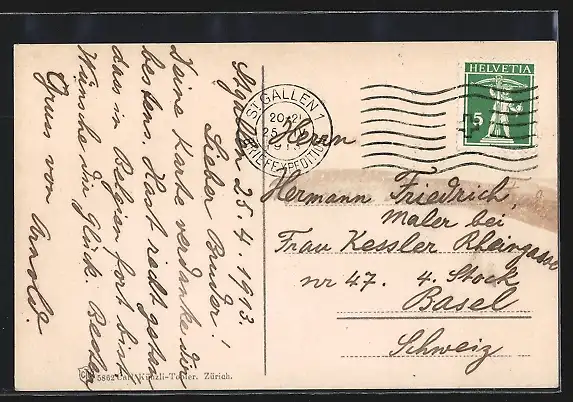 St. Gallen 25.4.1913.
Lieber Bruder!
Deine Karte verdanke dir
bestens. Hast recht getan
das in Belgien fort bist
Wünsche dir Glück. Besten
Gruss vom Arnold.
HELVETIA
5
ST. GALLEN 1
20-21
25. IV.
BRIEFEXPEDITION
Herrn
Hermann Friedrich,
Maler bei
Frau Kessler Rheingasse
nr 47. 4. Stock
Basel
Schweiz
5862 Carl Künzli-Tobler. Zürich.